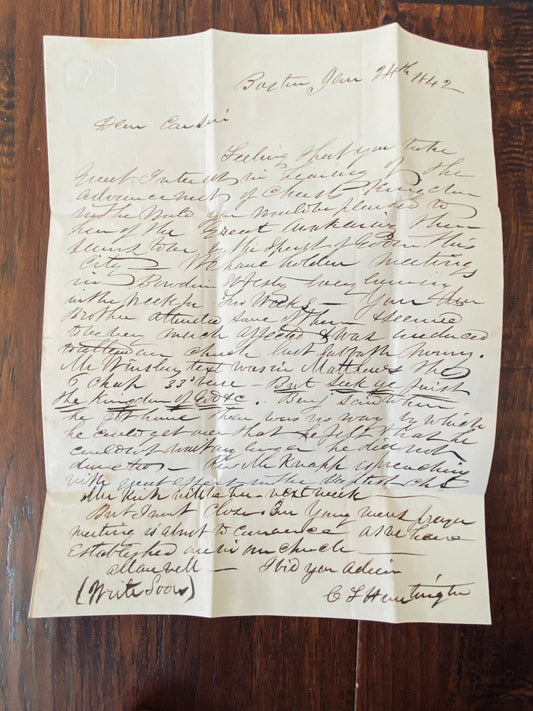 Boston Jan 24th 1842
Dear Cousin
Feeling that you take
Great Interest in hearing of the
advancement of Christ Kingdom
in the World you would be pleased to
hear of the Great Awakening there
seems to be by the Spirit of God in this
City — We have holden meetings
in Bowdoin St Vestry every evening
in the week for two weeks — Your dear
Brother attended some of them & seemed
to be very much affected & was induced
to attend our church last Sabbath morning.
Mr Winslow text was in Matthews the
6 chap 33d verse — But Seek ye first
the Kingdom of God &c. Benj. said when
he got home there was no way by which
he could get over that he felt that he
could not any longer he did not
direction — Rev Mr Knapp is preaching
with great effect in the Baptist Chs
Mr Kirk will be here next week —
But I must Close. Our Young mens prayer
meeting is about to commence as we have
Established one in our church —
all are well — I bid you adieu
(Write Soon) C L Huntington